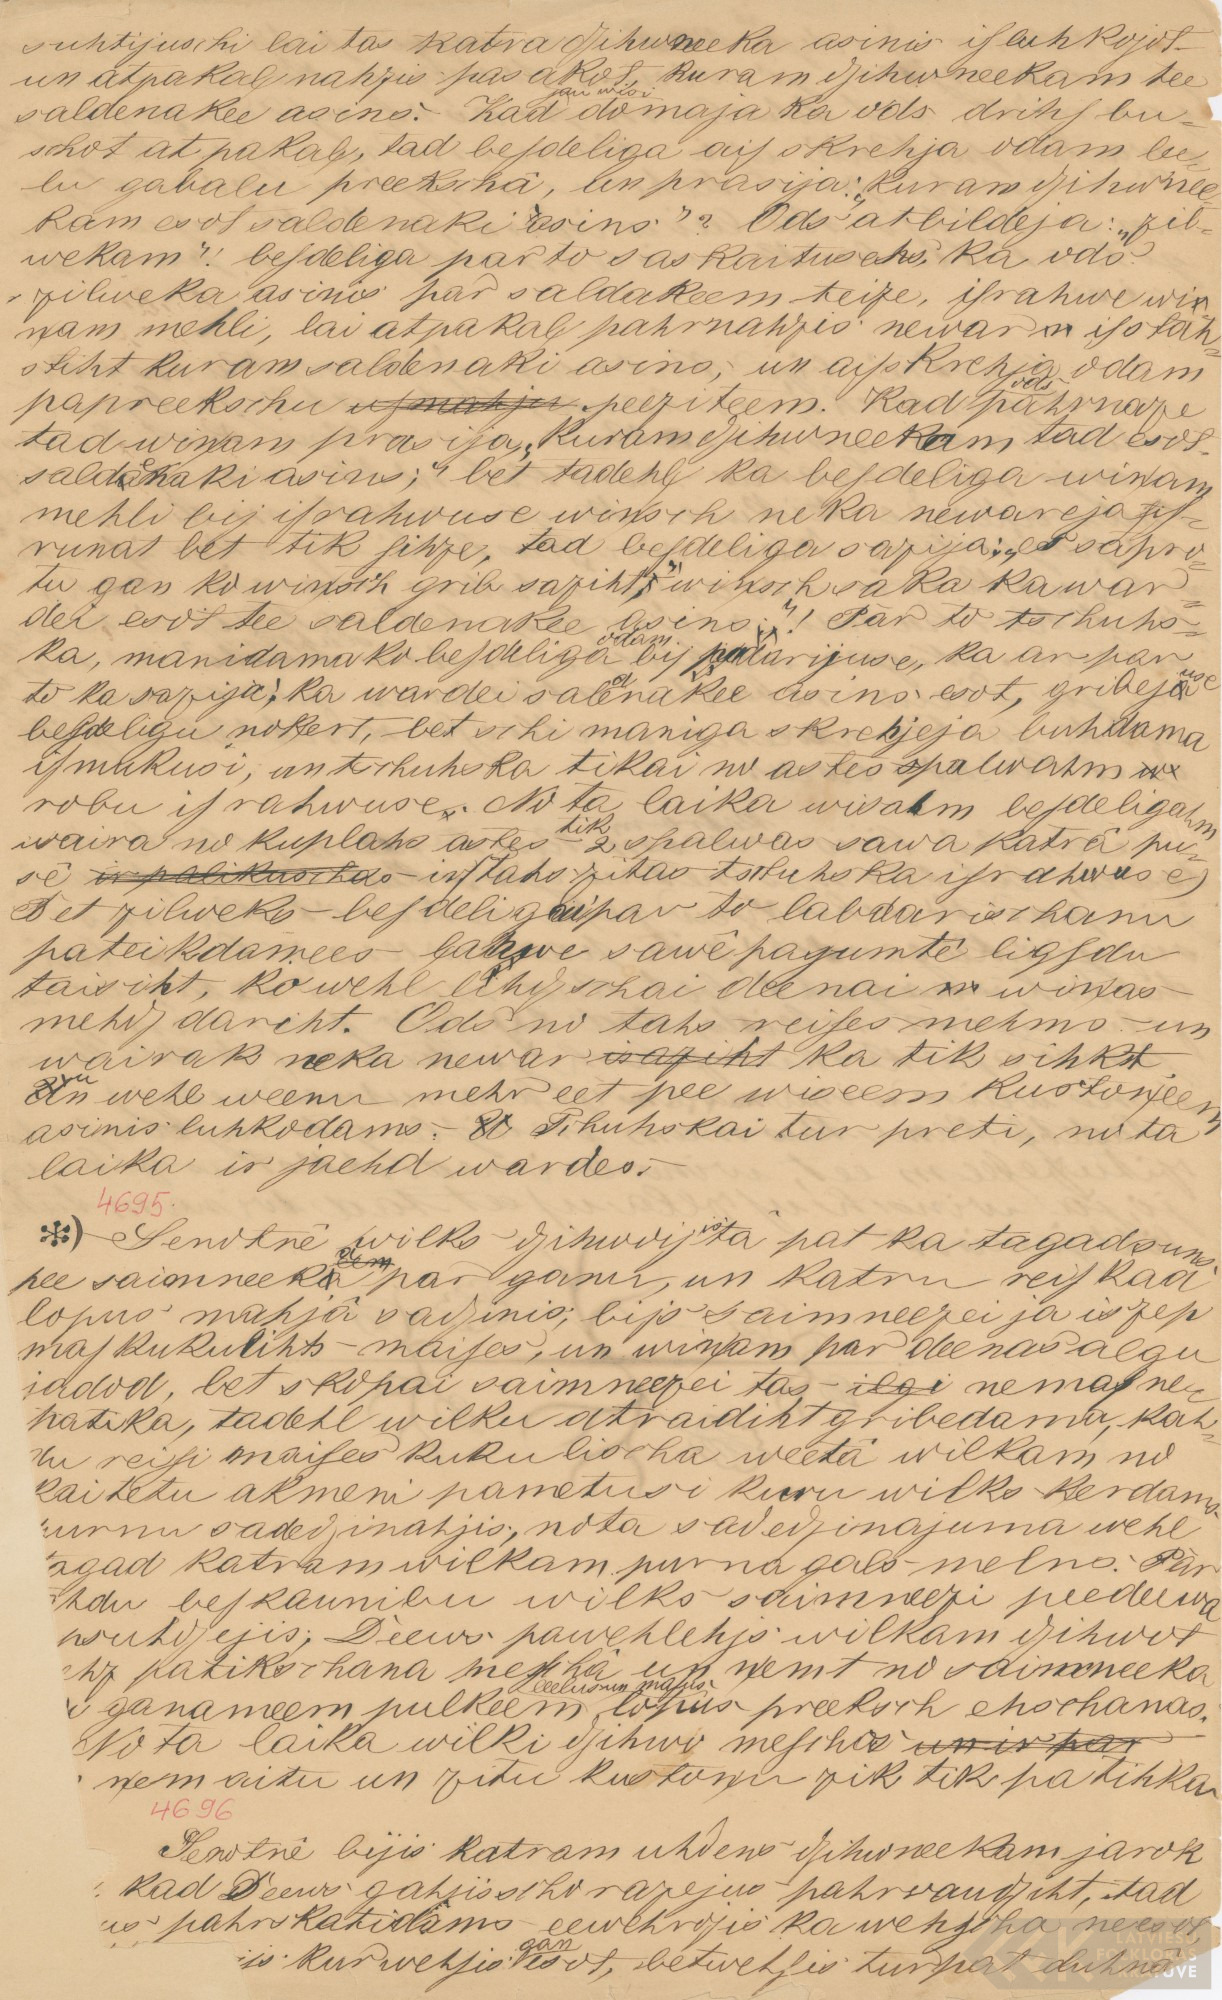 suhtijuschi lai tas katra dzihwneeka asinis isluhkojot
un atpakaļ nahzis pasakot, kuram dzihwneekam tee
saldenakee asins. Kad jau wisi domaja ka ods drihs bu-
schot atpakaļ, tad besdeliga aisskrehja odam lee-
lu gabalu preekschâ, un prasija: „kuram dzihwnee-
kam esot saldenaki asins"? Ods atbildeja: „zil-
wekam"! besdeliga par to saskaitusehs, ka ods
zilweka asinis par saldakeem teize, israhwe wiņ
ņam mehli, lai atpakaļ pahrnahzis newar isstah-
stiht kuram saldenaki asins, un aisskrehja odam
papreekschu usmahju peeziteem. Kad ods pahrnaze
tad wiņam prasija, „kuram dzihwneekam tad esot
saldenaki asins;" bet tadehļ ka besdeliga wiņam
mehli bij israhwuse winsch neka newareja is-
runat bet tik sihze, tad besdeliga sazija: „es sapro-
tu gan ko winsch grib saziht," winsch saka ka war-
dei esot tee saldenakee asins"! Par to tschuhs-
ka, manidama ko besdeliga odam bij padarijuse, ka ar par
to ka sazija, ka wardei saldenakee asins esot, gribejuse
besdeligu nokert, bet schi maniga skrehjeja buhdama
ismukusi, un tschuhska tikai no astes spalwahm
robu israhwuse. No ta laika wisahm besdeligahm
waira no kuplahs astes tik 2 spalwas sawa katrâ pu-
sê ir palikuschas ir (tahs zitas tschuhska israhwuse)
Bet zilweks besdeligai par to labdarischanu
pateikdamees ļahwe sawê pagumtê ligsdu
taisiht, ko wehl lihdz schai deenai wiņas
mehdz dariht. Ods no tahs reises mehms un
wairak neka newar isaziht ka tik sihkst
un wehl weenu mehr eet pee wiseem kustoņeem
asinis luhkodams. Tschuhskai turpreti, no ta
laika ir jaehd wardes.
4695.
*) Senotnê wilks dzihwojis tâ pat ka tagad suns
pee saimneekadeem par ganu, un katru reis kad
lopus mahjâ sadzinis, bijs saimneezei ja iszep
mas kukulihts maises, un wiņam par deenas algu
jadod, bet skopai saimneezei tas ilgi nemas ne-
patika, tadehl wilku atraidiht gribedama, kah-
du reisi maises kukulischa weetâ wilkam no
kaitetu akmeni pametusi kuru wilks kerdams
purnu sadedzinahjis, no ta sadedzinajuma wehl
tagad katram wilkam purna gals melns. Par
tahdu beskaunibu wilks saimneezi pee deewa
suhdzejis; Deews pawehlehjs wilkam dzihwot
pehz patikschana meschâ un ņemt no saimneeka
ganameem pulkeem leelus un masus lopus preeksch ehschanas.
No ta laika wilki dzihwo meschôs un ir par
ņem aitu un zitu kustoņu zik tik patihkas
4696
Senotnê bijis katram uhdens dzihwneekam jarok
kad Deews gahjis scho razejus pahrraudziht, tad
pahrskatidams eewehrojis ka wehzsha neesot
is kur wehsis gan esot, bet wehsis turpat duhnâ
LATVIEŠU
FOLKLORAS
KRĀTUVE